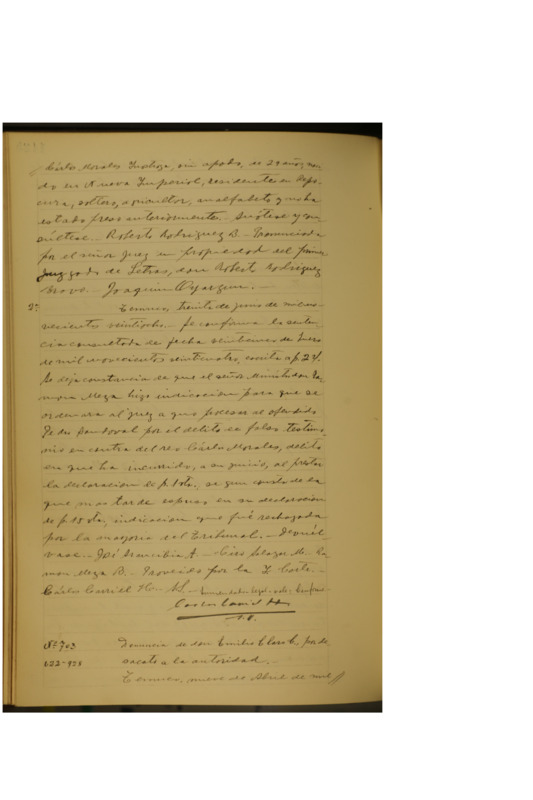 Cárlos Morales Inostroza, sin apodo, de 29 años, naci-
do en Nueva Imperial, residente en Repo-
cura, soltero, agricultor, analfabeto y no ha
estado preso anteriormente. Anótese y con-
súltese. Roberto Rodriguez B. Pronunciada
por el señor Juez en propiedad del primer
Juzgado de Letras, don Roberto Rodriguez
Bravo. Joaquin Oyarzun.
2ª
Temuco, treinta de junio de mil no-
vecientos veintiocho. Se confirma la senten-
cia consultada de fecha de Enero
de mil novecientos veinticuatro, escrita a f. 24.
Se deja constancia de que el señor Ministro don Ra-
mon Meza hizo indicacion para que se
ordenara al juez a quo procesar al ofendido
Pedro Sandoval por el delito de falso testimo-
nio en contra del reo Cárlos Morales, delito
en que ha incurrido, a su juicio, al prestar
la declaracion de f. 1 vta. segun consta de lo
que mas tarde expuso en su declaracion
de f. 15 vta, indicacion que fué rechazada
por la mayoria del Tribunal. Devuél-
vase. José Arancibia A. Ciro Salazar M. Ra-
mon Meza B. Proveido por la I. Corte.
Cárlos
Nº 703
Denuncia de don Emilio Claro C, por de-
622-928
sacato a la autoridad.
Temuco, nueve de Abril de mil